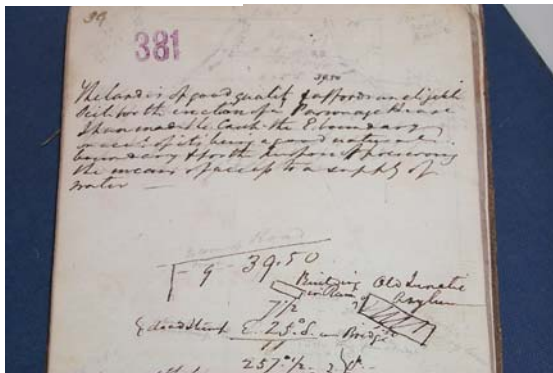 39
381
3950
The land is of good quality & affords an eligible
Site for the erection of a Parsonage House
I have made the Creek the E. boundary
on acct of its being a good natural
boundary & for the purpose of preserving
the means of access to a supply of
water
Road
9 39.50
Building Old Lunatic
in Ruin Asylum
7 1/2
E. 25° S. Bridge
11
257° 1/2